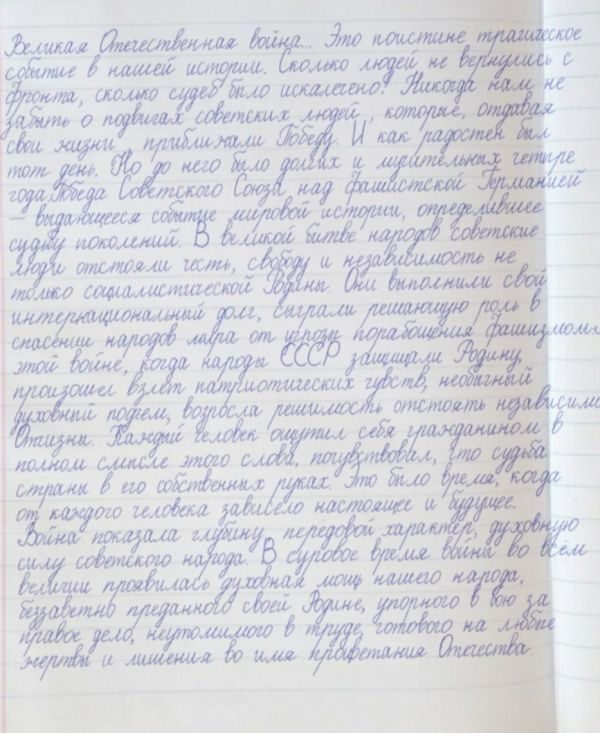 Великая Отечественная война... Это поистине трагическое
событие в нашей истории. Сколько людей не вернулись с
фронта, сколько судеб было искалечено! Никогда нам не
забыть о подвигах советских людей, которые, отдавая
свои жизни, приближали Победу. И как радостен был
тот день. Но до него было долгих и мучительных четыре
года. Победа Советского Союза над фашистской Германией
– выдающееся событие мировой истории, определившее
судьбу поколений. В великой битве народов советские
люди отстояли честь, свободу и независимость не
только социалистической Родины. Они выполнили свой
интернациональный долг, сыграли решающую роль в
спасении народов мира от угрозы порабощения фашизмом.
этой войне, когда народы СССР защищали Родину,
произошел взлет патриотических чувств, необычный
духовный подъем, возросла решимость отстоять независимо
Отчизны. Каждый человек ощутил себя гражданином в
полном смысле этого слова, почувствовал, что судьба
страны в его собственных руках. Это было время, когда
от каждого человека зависело настоящее и будущее.
Война показала глубину, передовой характер, духовную
силу советского народа. В суровое время войны во всём
величии проявилась духовная мощь нашего народа,
беззаветно преданного своей Родине, упорного в бою за
правое дело, неутомимого в труде, готового на любые
жертвы и лишения во имя процветания Отечества.